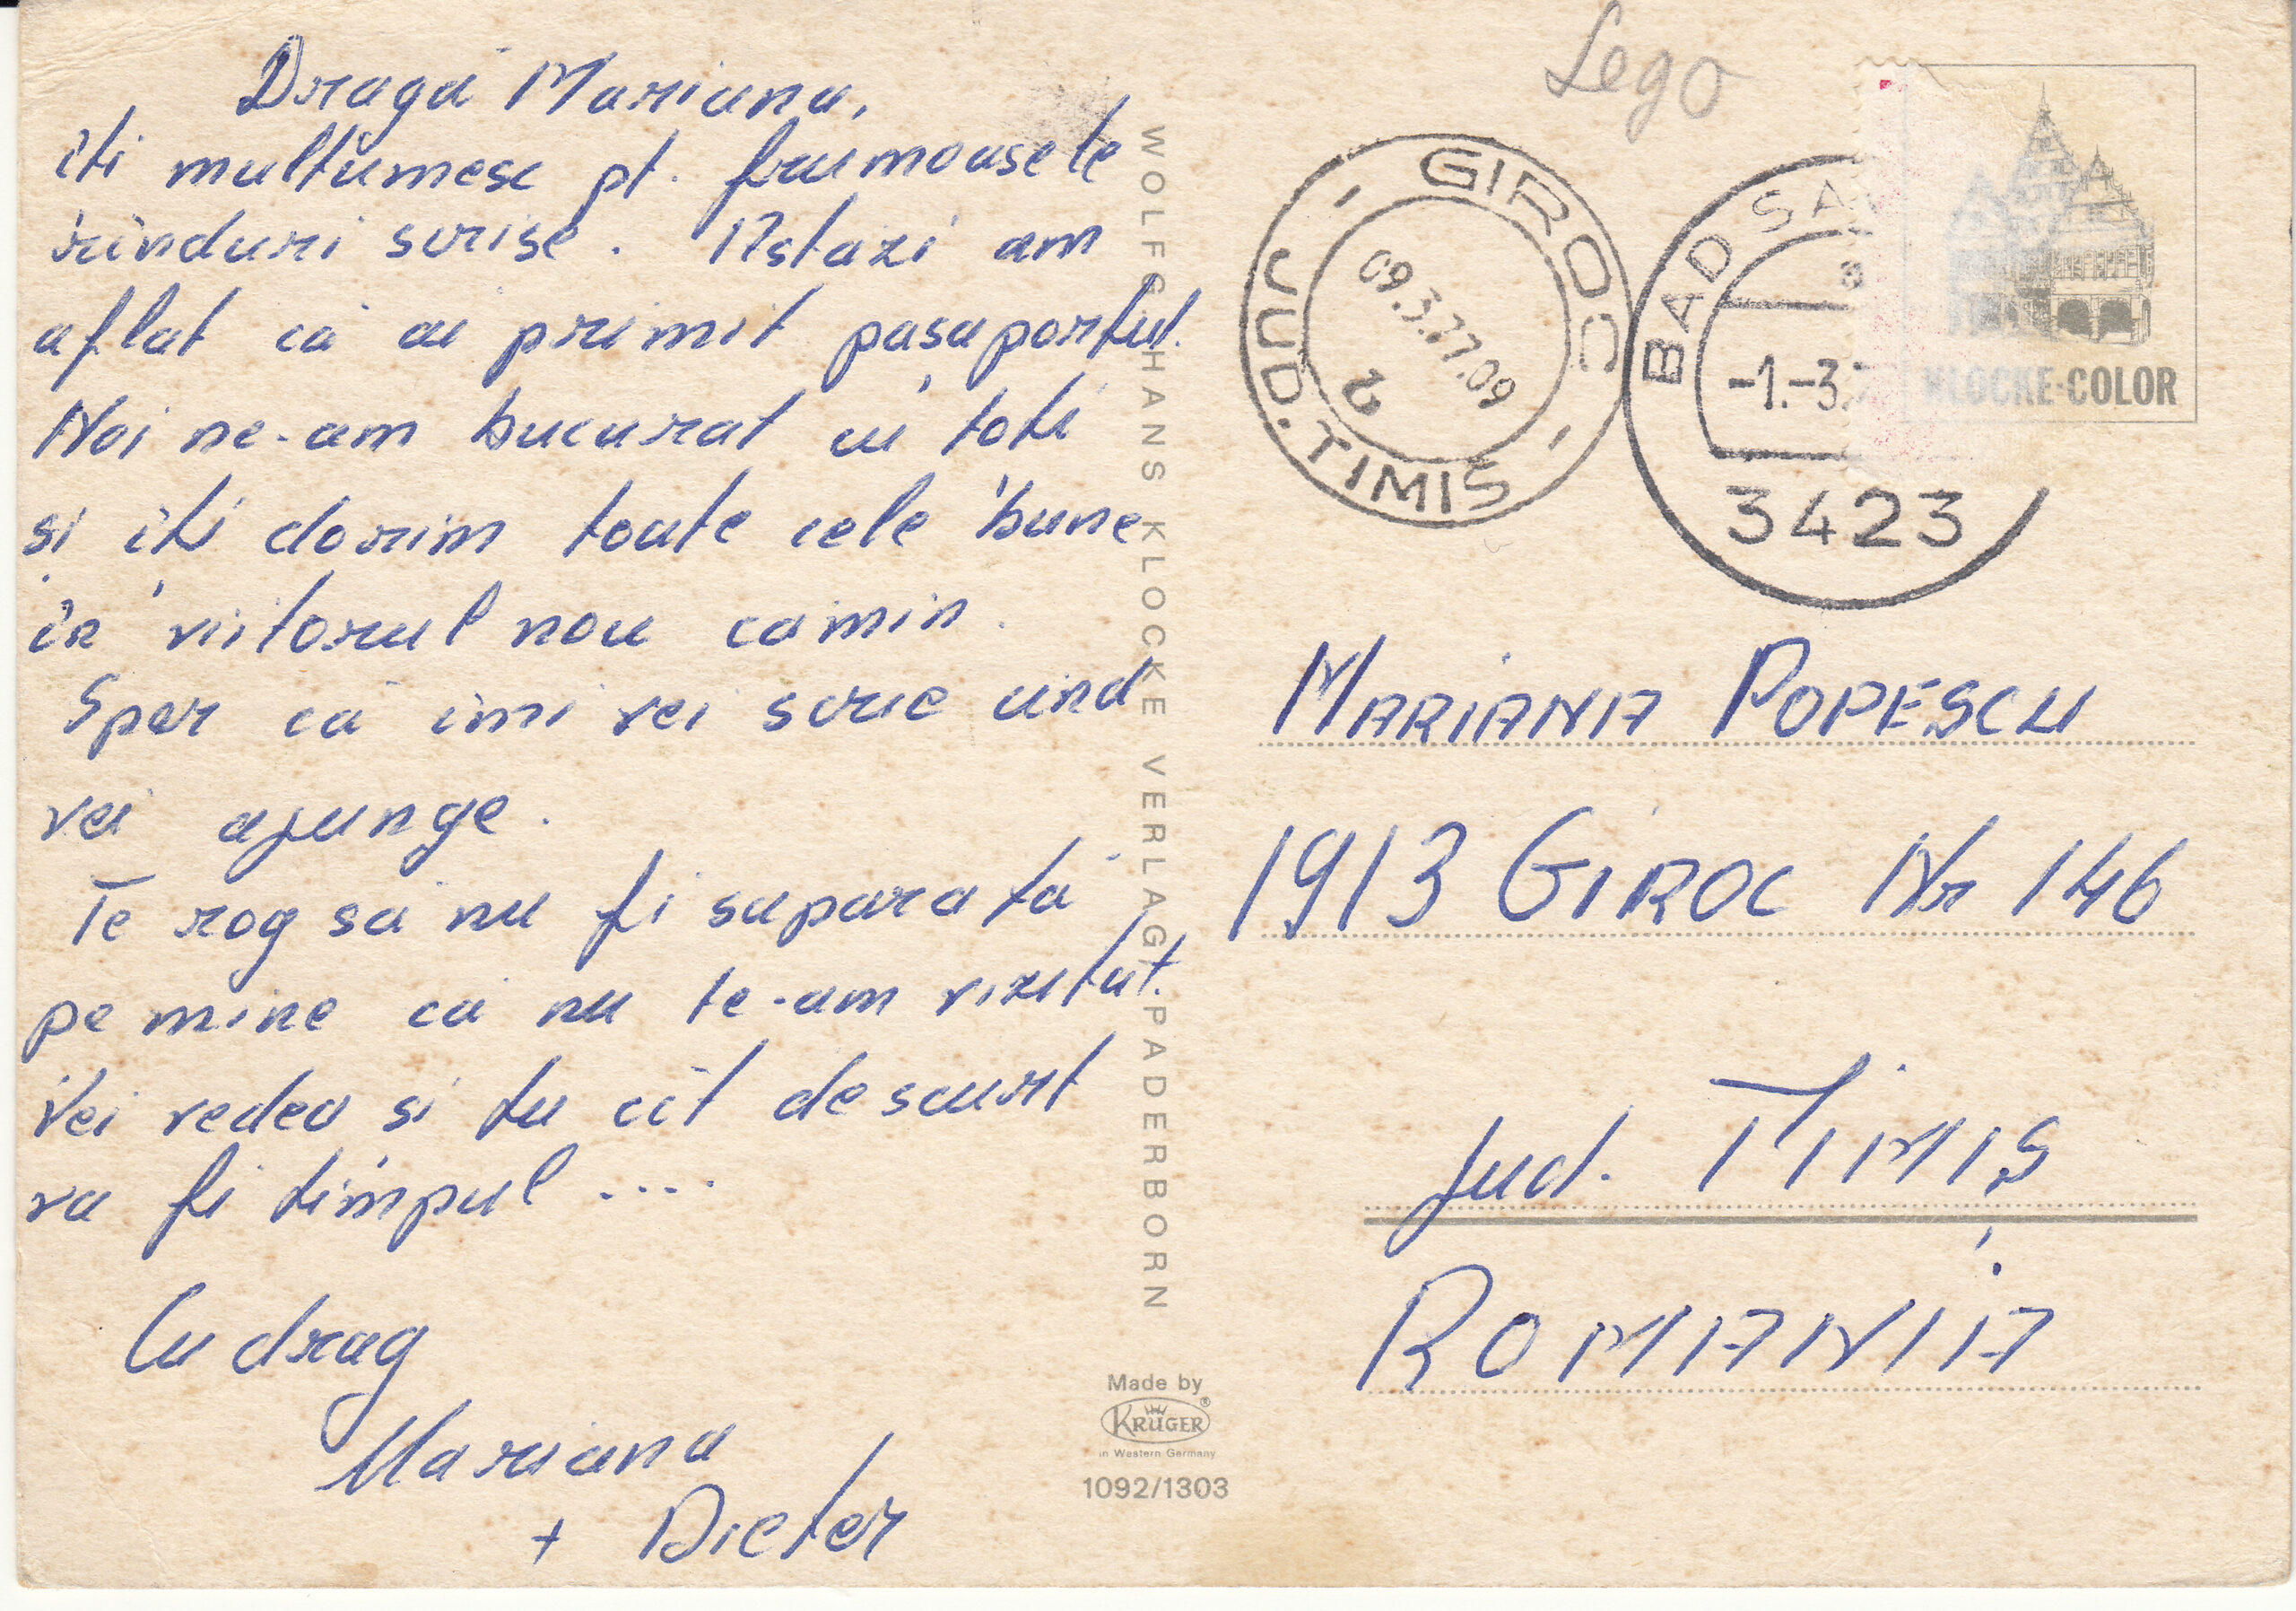 Dragă Mariana,
îti multumesc pt. frumoasele
rînduri scrise. Astazi am
aflat că ai primit pasaportul.
Noi ne-am bucurat cu toti
si îti dorim toate cele bune
în viitorul nou camin.
Sper că imi vei scrie cind
vei ajunge.
Te rog să nu fi suparata
pe mine că nu te-am vizitat.
Vei vedea si tu cît de scurt
va fi timpul ....
Cu drag
Mariana
+ Dieter
WOLFG HANS KLOCKE VERLAG PADERBORN
Made by
KRÜGER®
in Western Germany
1092/1303
Lego
GIROC
JUD. TIMIS
09.3.77.09
BAD SA
-1.-3.7
3423
KLOCKE-COLOR
MARIANA POPESCU
1913 GIROC Nr 146
Jud. TIMIȘ
ROMANIA